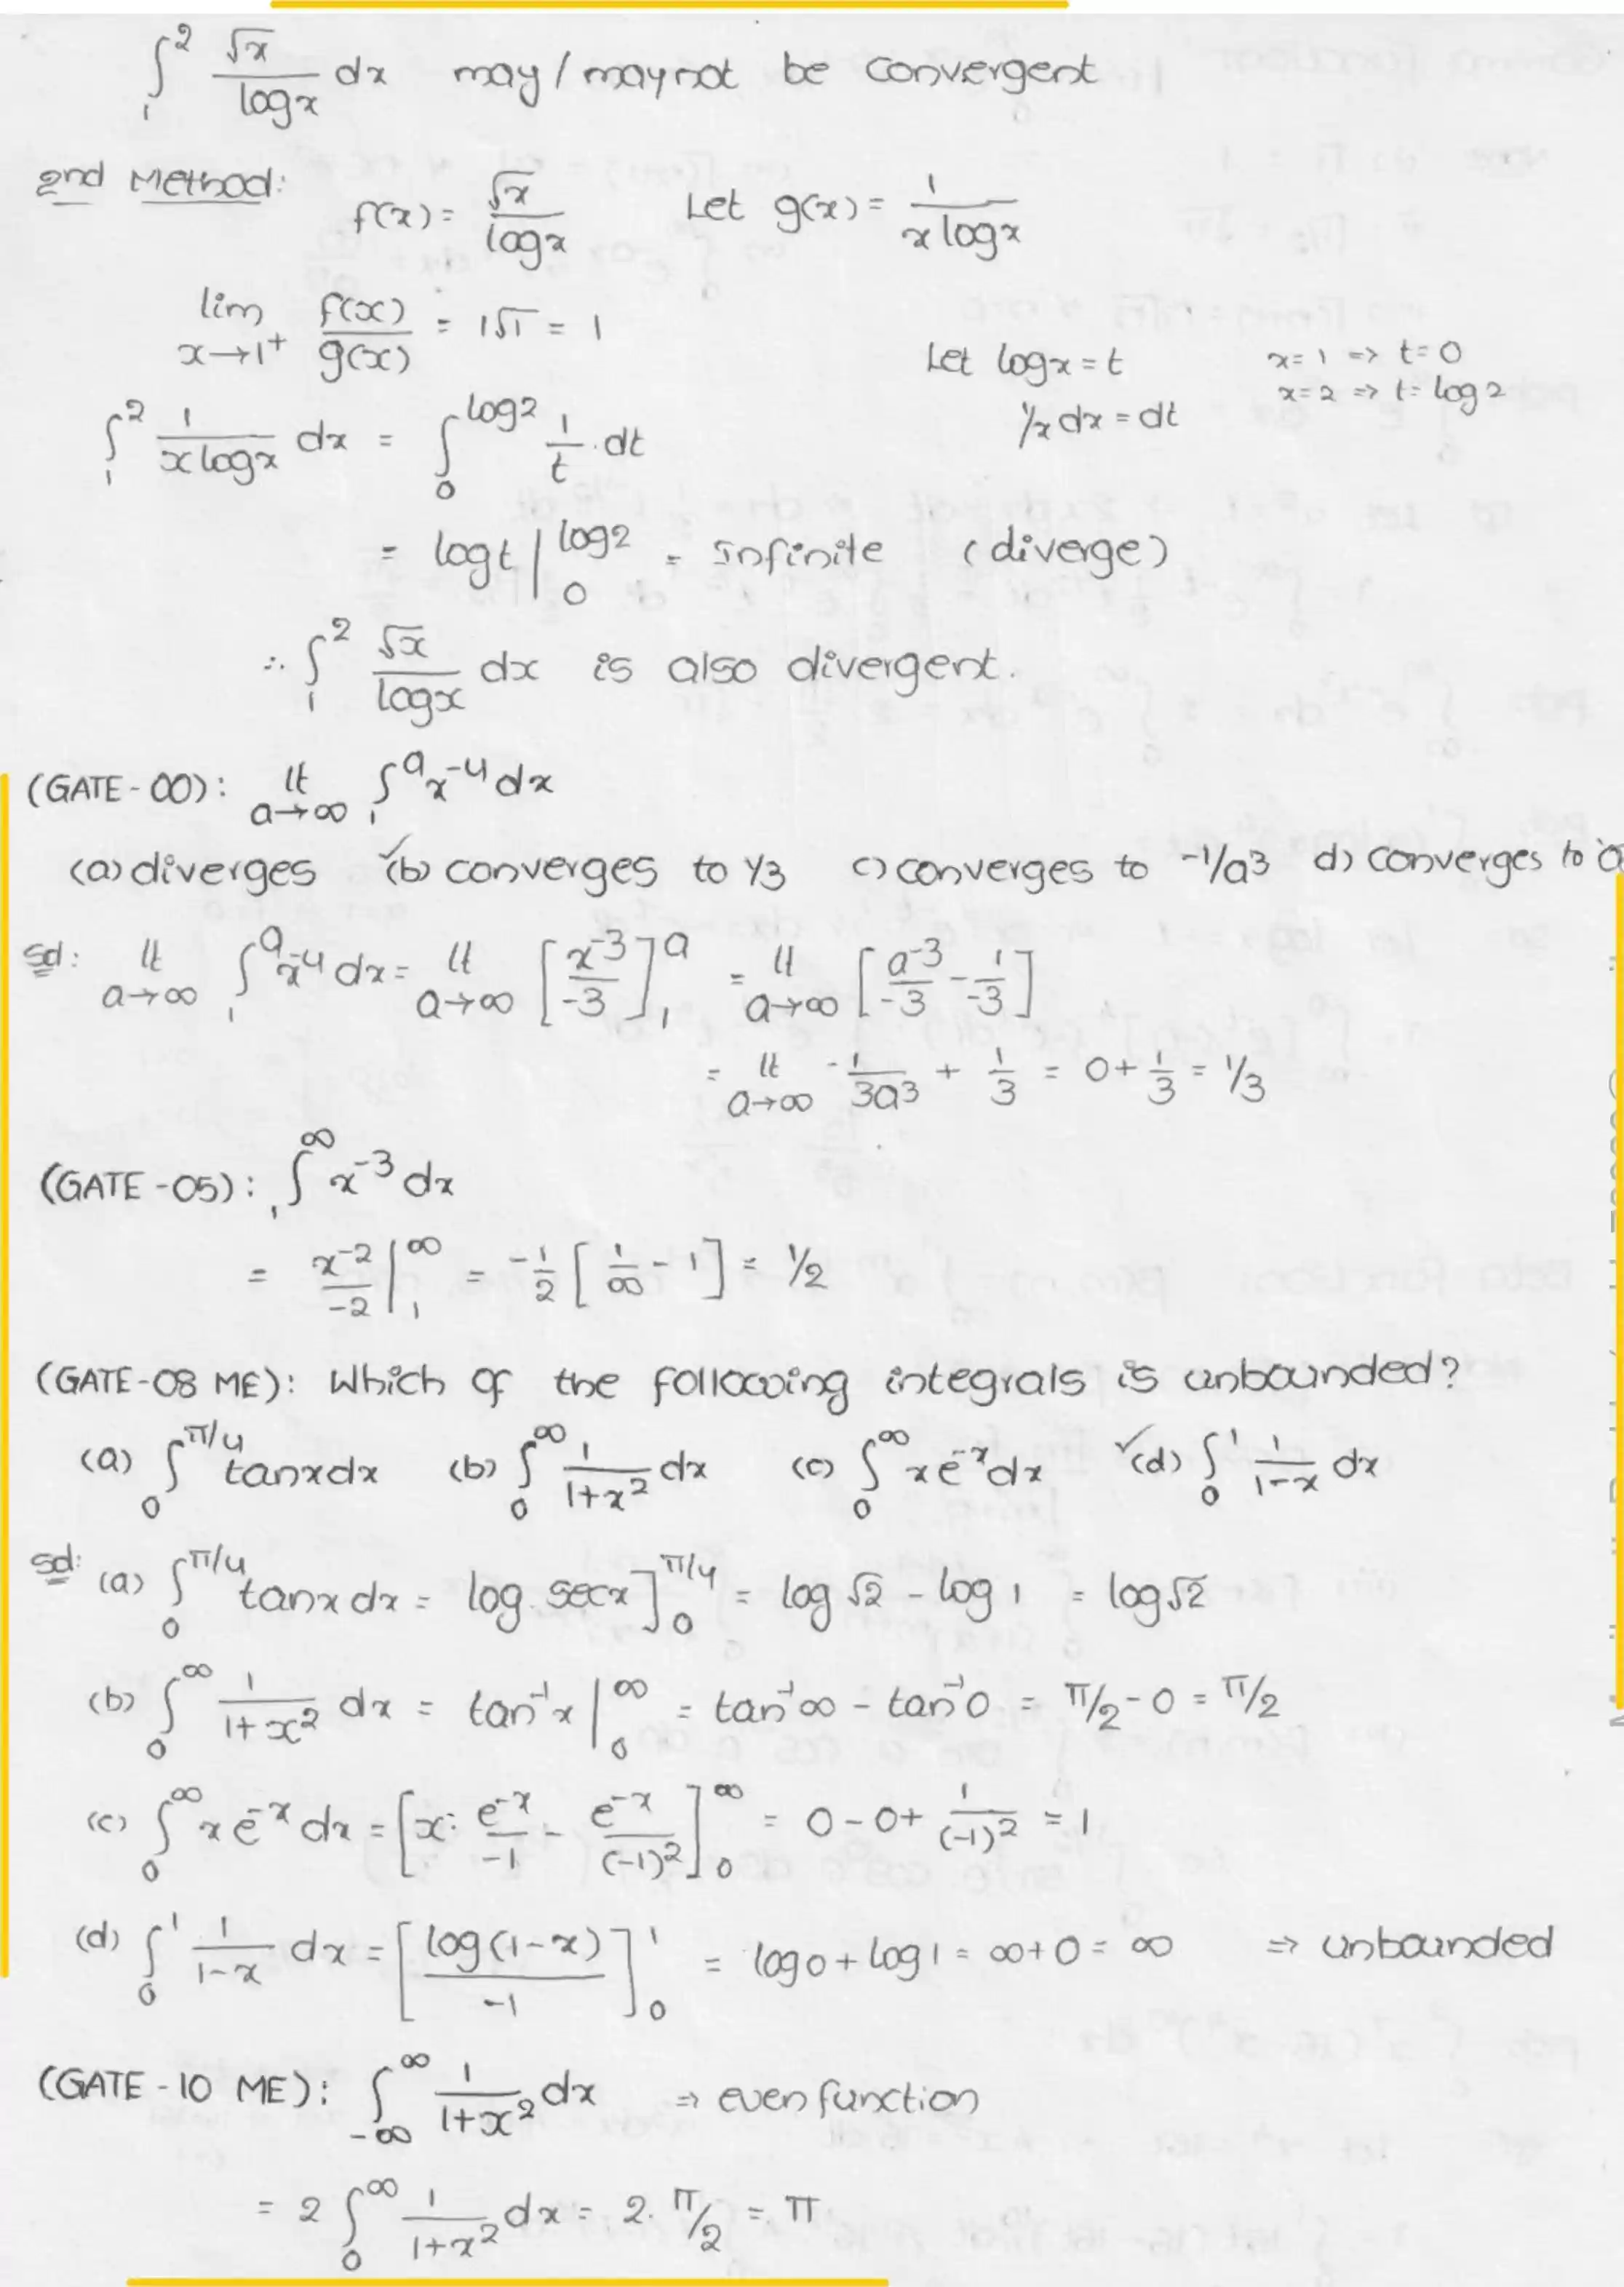 ∫₁² √x/logx dx may/maynot be convergent
2nd Method: f(x) = √x/logx Let g(x) = 1/(x logx)
lim x→1⁺ f(x)/g(x) = 1√1 = 1
Let logx = t x=1 => t=0
1/x dx = dt x=2 => t= log2
∫₁² 1/(x logx) dx = ∫₀^log2 1/t . dt
= logt |₀^log2 = infinite (diverge)
∴ ∫₁² √x/logx dx is also divergent.
(GATE-00): lt a→∞ ∫₁^a x⁻⁴ dx
(a) diverges ✓(b) converges to 1/3 c) converges to -1/a³ d) converges to
Sol: lt a→∞ ∫₁^a x⁻⁴ dx = lt a→∞ [x⁻³/-3]₁^a = lt a→∞ [a⁻³/-3 - 1/-3]
= lt a→∞ -1/3a³ + 1/3 = 0 + 1/3 = 1/3
(GATE-05): ∫₁^∞ x⁻³ dx
= x⁻²/-2 |₁^∞ = -1/2 [1/∞ - 1] = 1/2
(GATE-08 ME): Which of the following integrals is unbounded?
(a) ∫₀^π/4 tanx dx (b) ∫₀^∞ 1/(1+x²) dx (c) ∫₀^∞ x e⁻ˣ dx ✓(d) ∫₀¹ 1/(1-x) dx
Sol: (a) ∫₀^π/4 tanx dx = log secx]₀^π/4 = log √2 - log 1 = log √2
(b) ∫₀^∞ 1/(1+x²) dx = tan⁻¹x |₀^∞ = tan⁻¹∞ - tan⁻¹0 = π/2 - 0 = π/2
(c) ∫₀^∞ x e⁻ˣ dx = [x. e⁻ˣ/-1 - e⁻ˣ/(-1)²]₀^∞ = 0 - 0 + 1/(-1)² = 1
(d) ∫₀¹ 1/(1-x) dx = [log(1-x)/-1]₀¹ = log0 + log1 = ∞ + 0 = ∞ => unbounded
(GATE-10 ME): ∫₋∞^∞ 1/(1+x²) dx => even function
= 2 ∫₀^∞ 1/(1+x²) dx = 2. π/2 = π